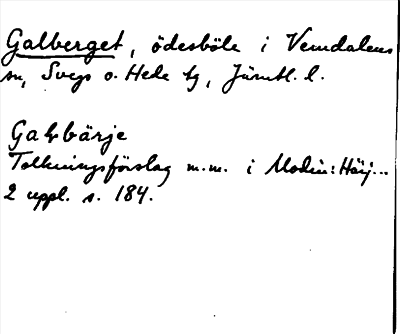 Galberget, ödesböle i Vemdalens
sn, Svegs o. Hede tg, Jämtl. l.
Galbärje
Tolkningsförslag m.m. i Modin: Härj...
2 uppl. s. 184.